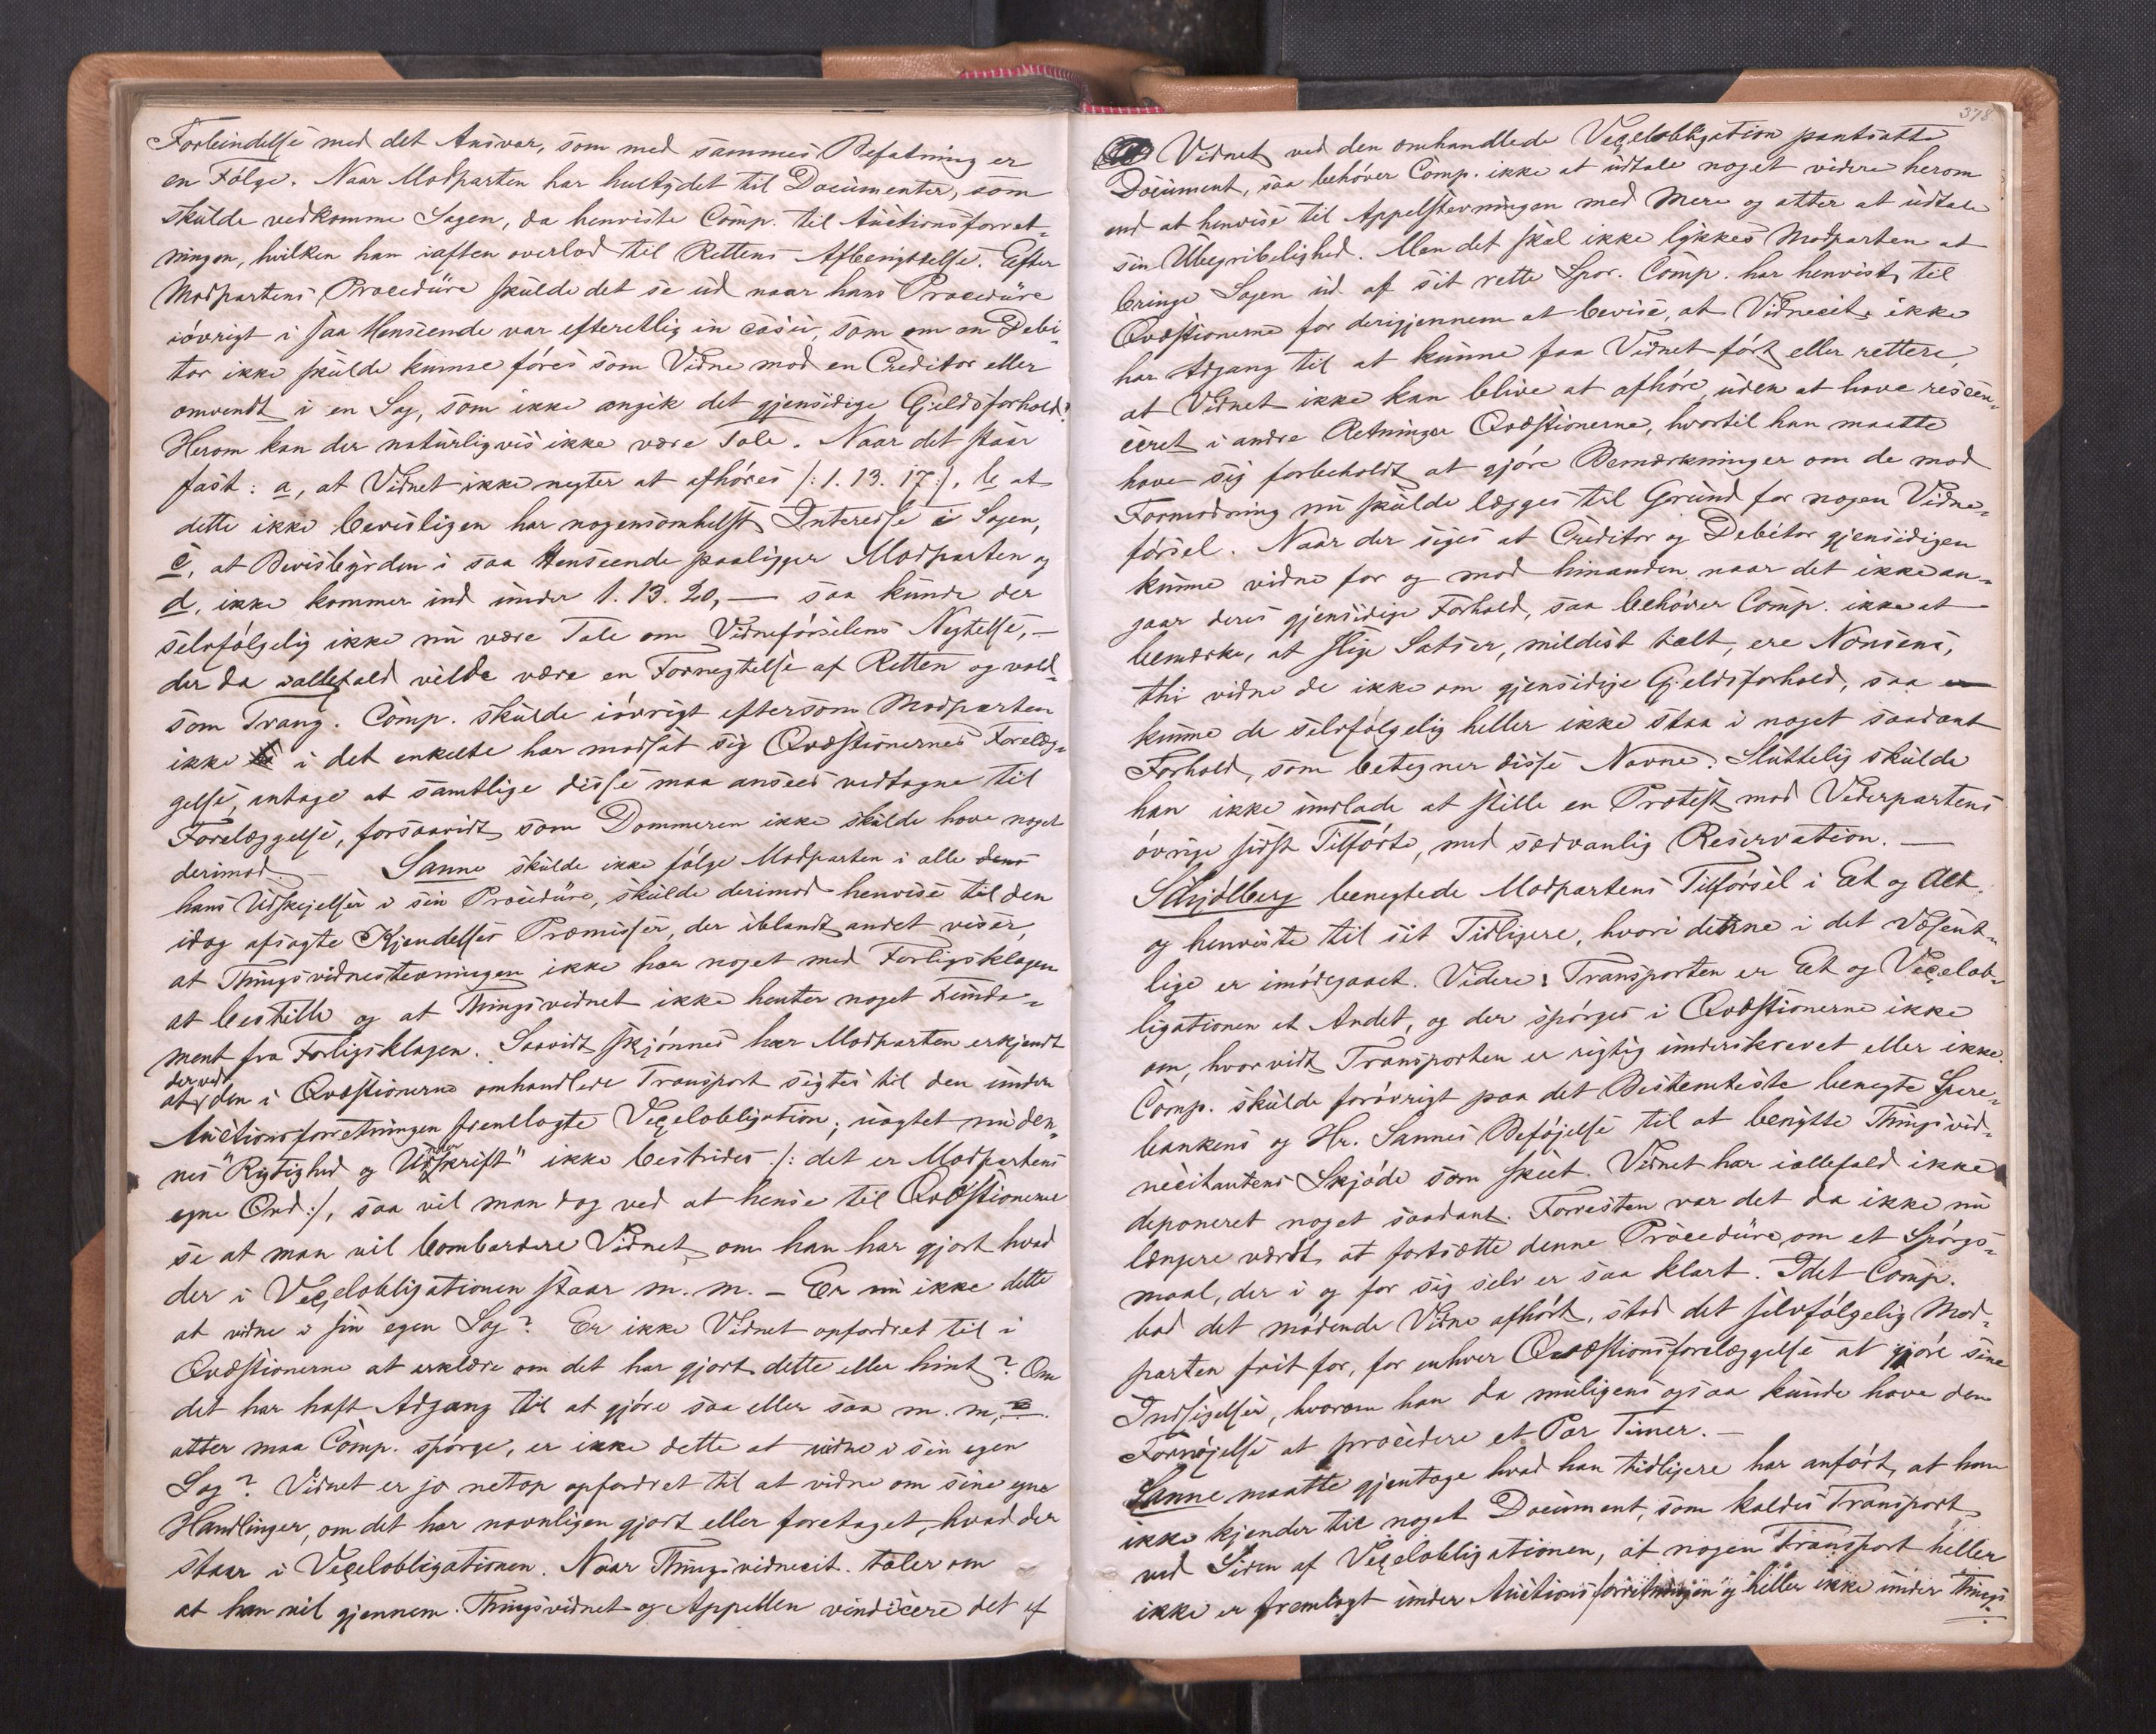 Forbindelse med det Ansvar, som med sammes Befatning er
en Følge. Naar Modparten har hentydet til Documenter, som
skulde vedkomme Sagen, da henviste Comp. til Auctionsforret-
ningen, hvilken han iaften overlod til Rettens Afbenyttelse. Efter
Modpartens Procedüre skulde det se ud naar hans Procedüre
iøvrigt i saa Henseende var efterretlig in casu, som om en Debi-
tor ikke skulde kunne føres som Vidne mod en Creditor eller
omvendt i en Sag, som ikke angik det gjensidige Gjeldsforhold?
Herom kan der naturligvis ikke være Tale. Naar det staar
fast: a, at Vidnet ikke negter at afhøres /: 1. 13. 17 :/, b at
dette ikke bevisligen har nogensomhelst Interesse i Sagen,
c, at Bevisbyrden i saa Henseende paaligger Modparten og
d, ikke kommer ind under 1. 13. 20, — saa kunde der
selvfølgelig ikke nu være Tale om Vidneførselens Negtelse, —
der da iallefald vilde være en Fornegtelse af Retten og vold-
som Trang. Comp. skulde iøvrigt eftersom Modparten
ikke i det enkelte har modsat sig Qvæstionernes Forelæg-
gelse, antage at samtlige disse maa ansees vedtagne til
Forelæggelse, forsaavidt som Dommeren ikke skulde have noget
derimod. — Sanne skulde ikke følge Modparten i alle dens
hans Udskejelser i sin Procedüre, skulde derimod henvise til den
idag afsagte Kjendelses Præmisser, der iblandt andet viser,
at Thingsvidnestevningen ikke har noget med Forligsklagen
at bestille og at Thingsvidnet ikke henter noget Funda-
ment fra Forligsklagen. Saavidt skjønnes har Modparten erkjendt
at der ved den i Qvæstionerne omhandlede Transport sigtes til den under
Auctionsforretningen fremlagte Vexelobligation; uagtet nu den-
nes "Rigtighed og Underskrift" ikke bestrides /: det er Modpartens
egne Ord :/, saa vil man dog ved at hense til Qvæstionerne
se at man vil bombardere Vidnet om han har gjort hvad
der i Vexelobligationen staar m. m. — Er nu ikke dette
at vidne i sin egen Sag? Er ikke Vidnet opfordret til i
Qvæstionerne at erklære om det har gjort dette eller hint? Om
det har haft Adgang til at gjøre saa eller saa m. m,
atter maa Comp. spørge, er ikke dette at vidne i sin egen
Sag? Vidnet er jo netop opfordret til at vidne om sine egne
Handlinger, om det har navnligen gjort eller foretaget, hvad der
staar i Vexelobligationen. Naar Thingsvidnecit. taler om
at han vil gjennem Thingsvidnet og Appellen vindicere det af
378
Vidnet ved den omhandlede Vexelobligation pantsatte
Document, saa behøver Comp. ikke at udtale noget videre herom
end at henvise til Appelstevningen med Mere og atter at udtale
sin Ubegribelighed. Men det skal ikke lykkes Modparten at
bringe Sagen ud af sit rette Spor. Comp. har henvist til
Qvæstionerne for derigjennem at bevise, at Vidnecit. ikke
har Adgang til at kunne faa Vidnet ført eller rettere,
at Vidnet ikke kan blive at afhøre, uden at have rescen-
ceret i andre Retninger Qvæstionerne, hvortil han maatte
have sig forbeholdt at gjøre Bemærkninger om de mod
Formodning nu skulde lægges til Grund for nogen Vidne-
førsel. Naar der siges at Creditor og Debitor gjensidigen
kunne vidne for og mod hinanden naar det ikke an-
gaar deres gjensidige Forhold, saa behøver Comp. ikke at
bemærke, at slige Satser, mildest talt, ere Nonsens,
thi vidne de ikke om gjensidige Gjeldsforhold, saa
kunne de selvfølgelig heller ikke staa i noget saadant
Forhold, som betegner disse Navne. Sluttelig skulde
han ikke undlade at stille en Protest mod Vederpartens
øvrige sidst Tilførte, med sædvanlig Reservation. —
Schjølberg benegtede Modpartens Tilførsel i Et og Alt
og henviste til sit Tidligere, hvori denne i det Væsent-
lige er imødegaaet. Videre: Transporten er Et og Vexelob-
ligationen et Andet, og der spørges i Qvæstionerne ikke
om, hvorvidt Transporten er rigtig underskrevet eller ikke.
Comp. skulde forøvrigt paa det Bestemteste benegte Spare-
bankens og Hr. Sannes Beføjelse til at benytte Thingsvid-
necitantens Skjøde som skeet. Vidnet har iallefald ikke
deponeret noget saadant. Forresten var det da ikke nu
længere værdt at fortsætte denne Procedüre om et Spørgs-
maal, der i og for sig selv er saa klart. Idet Comp.
bad det mødende Vidne afhørt, stod det selvfølgelig Mod-
parten frit for, for enhver Qvæstionsforelæggelse at gjøre sine
Indsigelser, hvorom han da muligens ogsaa kunde have den
Fornøjelse at procedere et Par Timer. —
Sanne maatte gjentage hvad han tidligere har anført, at han
ikke kjender til noget Document, som kaldes "Transport"
ved Siden af Vexelobligationen, at nogen "Transport" heller
ikke er fremlagt under Auctionsforretningen og heller ikke under Things-